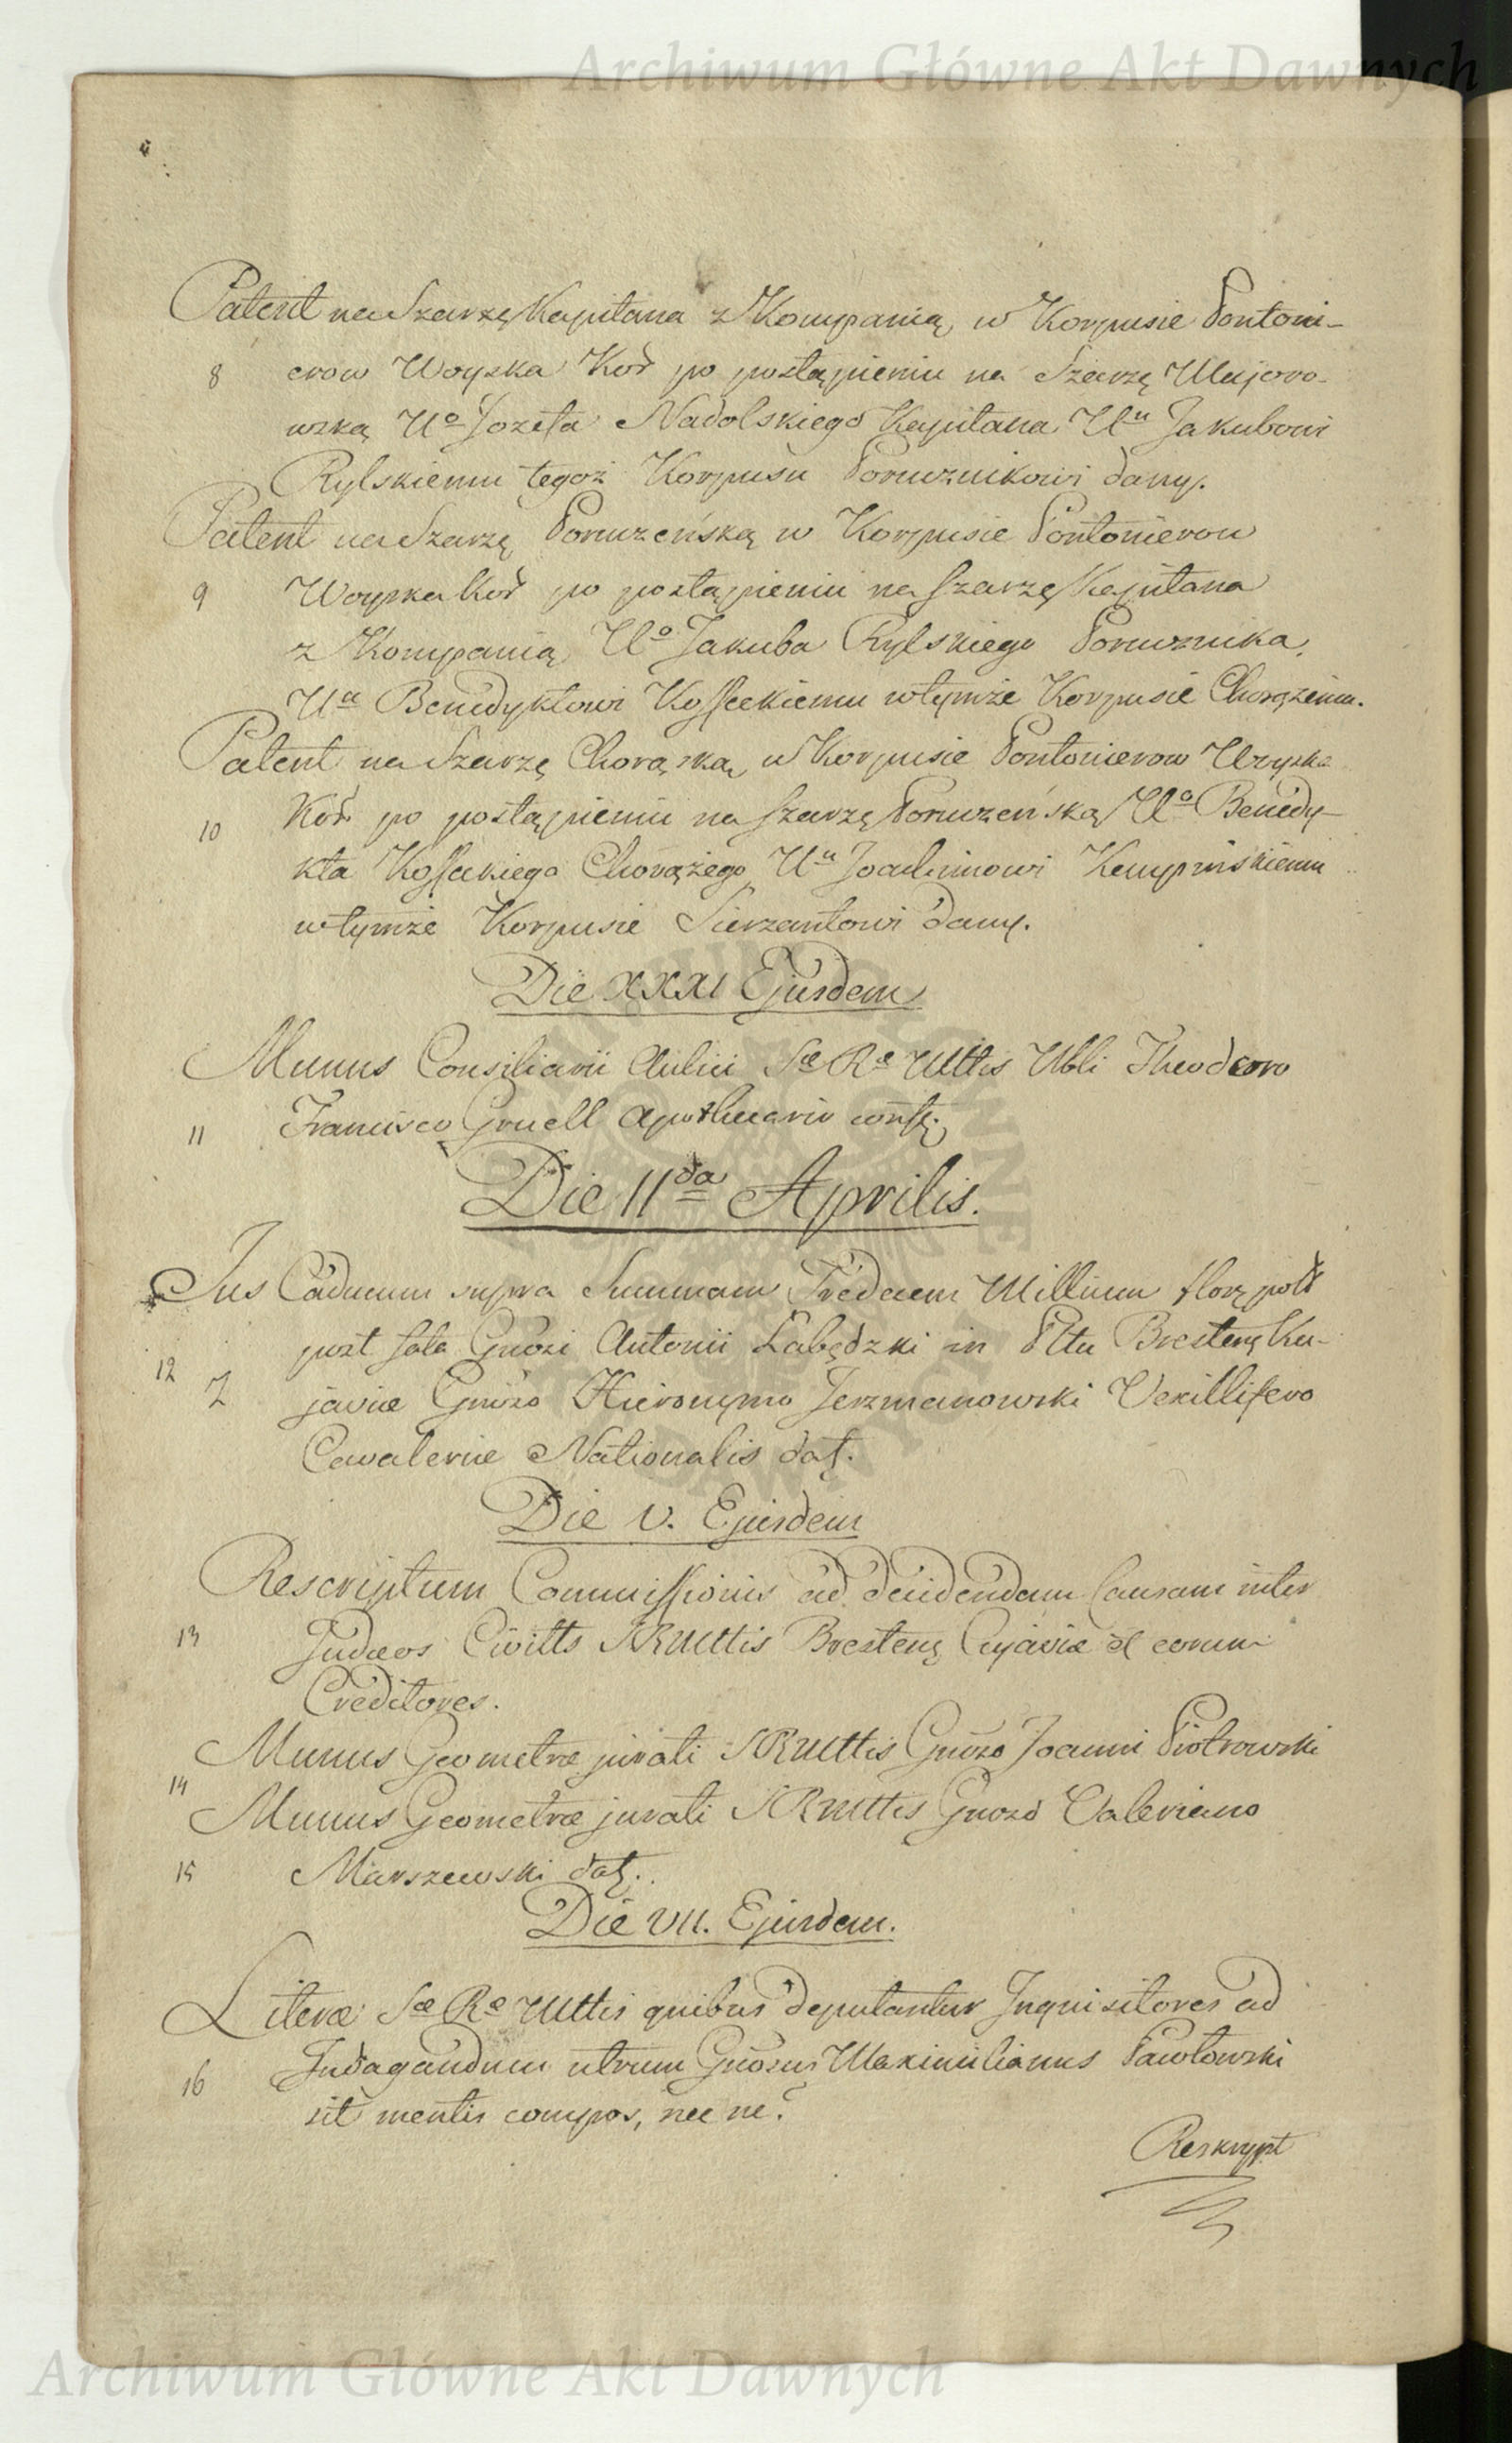 Archiwum Główne Akt Dawnych
Patent na Szarzę Kapitana z Kompanią w Korpusie Pontoni-
8 erow Woyska Kor po postąpieniu na Szarzę Majoro-
wską Uo Jozefa Nadolskiego Kapitana Uu Jakubowi
Rylskiemu tegoż Korpusu Porucznikowi dany.
Patent na Szarzę Poruczeńską w Korpusie Pontonierow
9 Woyska Kor po postąpieniu na Szarzę Kapitana
z Kompanią Uo Jakuba Rylskiego Porucznika,
Uu Benedyktowi Kosseckiemu w tymże Korpusie Chorążemu.
Patent na Szarzę Chorąską w Korpusie Pontonierow Woyska
10 Kor po postąpieniu na Szarzę Poruczeńską Uo Benedy-
kta Kosseckiego Chorążego Uu Joachimowi Kempinskiemu
w tymże Korpusie Sierzantowi dany.
Die XXXI Ejusdem
Munus Consiliarii Aulici Sæ Ræ Mttis Nbli Theodoro
11 Francisco Gruell Apothecario conft.
Die IIda Aprilis.
Jus Caducum supra Summam Tredecem Millium flor. pol
12 post fata Gnosi Antonii Łabędzki in Pttu Bresten. Ku-
javiæ Gnoso Hieronymo Jerzmanowski Vexillifero
Cavaleriæ Nationalis dat.
Die V. Ejusdem
Rescriptum Commissionis ad decidendam Causam inter
13 Judæos Civitts SRMttis Bresten. Cujaviæ et eorum
Creditores.
Munus Geometræ jurati SRMttis Gnoso Joanni Piotrowski
14
Munus Geometræ jurati SRMttis Gnoso Valeriano
15 Marszewski dat.
Die VII. Ejusdem.
Literæ Sæ Ræ Mttis quibus deputantur Inquisitores ad
16 Indagandum utrum Gnosus Maximilianus Pawłowski
sit mentis compos, nec ne?
Reskrypt
Archiwum Główne Akt Dawnych